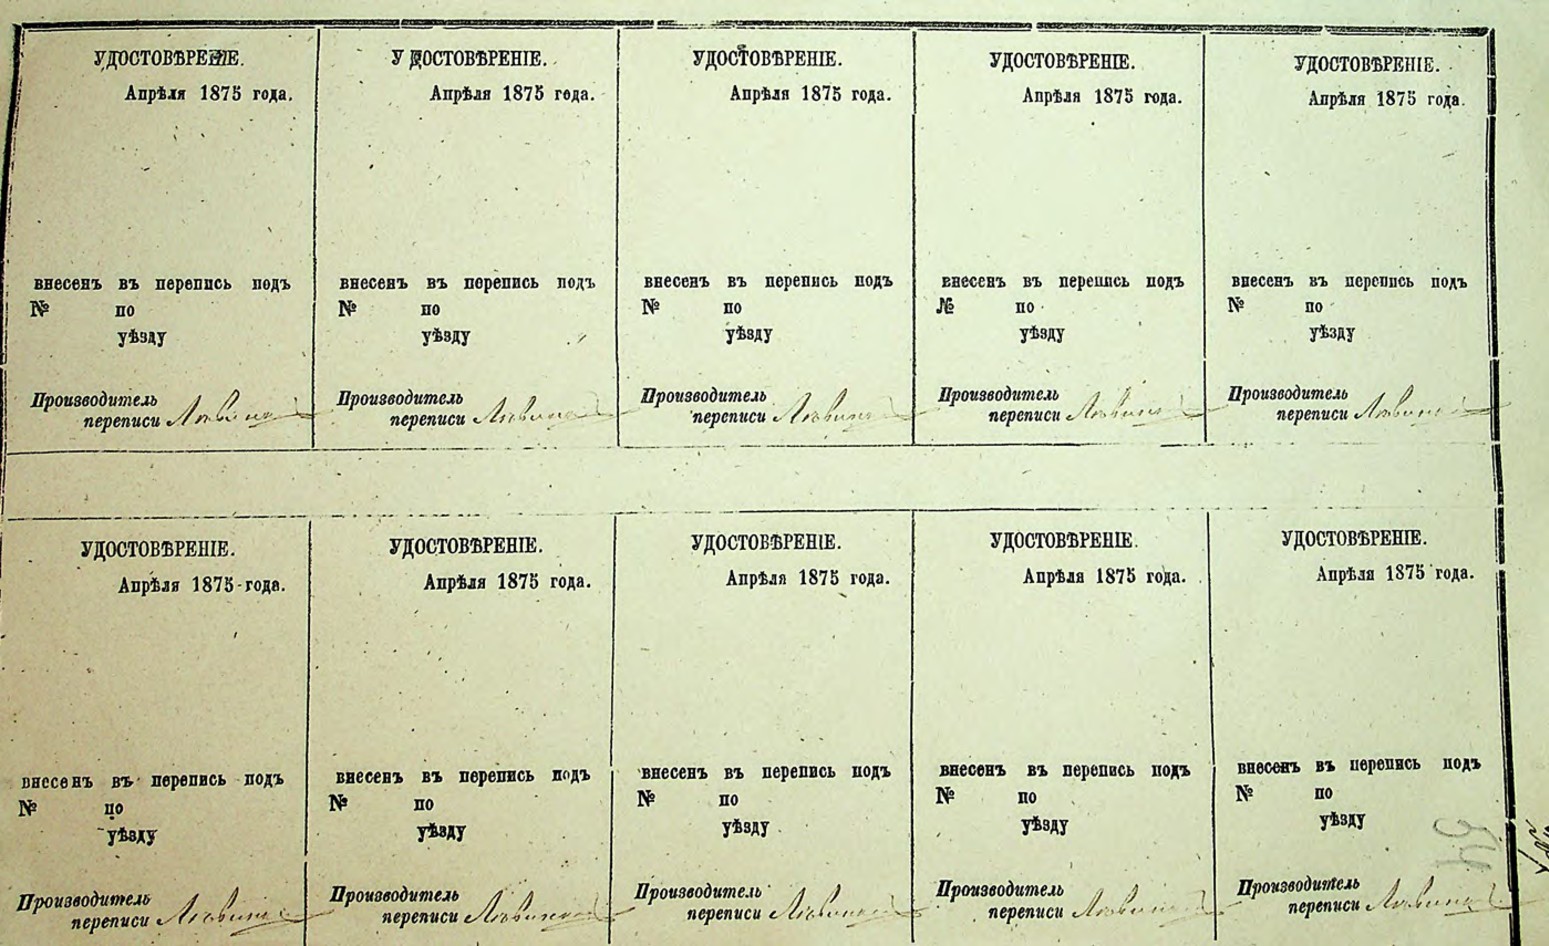 УДОСТОВѢРЕНІЕ.
Апрѣля 1875 года.
внесенъ въ перепись подъ
№ по
уѣзду
Производитель
переписи
УДОСТОВѢРЕНІЕ.
Апрѣля 1875 года.
внесенъ въ перепись подъ
№ по
уѣзду
Производитель
переписи
УДОСТОВѢРЕНІЕ.
Апрѣля 1875 года.
внесенъ въ перепись подъ
№ по
уѣзду
Производитель
переписи
УДОСТОВѢРЕНІЕ.
Апрѣля 1875 года.
внесенъ въ перепись подъ
№ по
уѣзду
Производитель
переписи
УДОСТОВѢРЕНІЕ.
Апрѣля 1875 года.
внесенъ въ перепись подъ
№ по
уѣзду
Производитель
переписи
УДОСТОВѢРЕНІЕ.
Апрѣля 1875 года.
внесенъ въ перепись подъ
№ по
уѣзду
Производитель
переписи
УДОСТОВѢРЕНІЕ.
Апрѣля 1875 года.
внесенъ въ перепись подъ
№ по
уѣзду
Производитель
переписи
УДОСТОВѢРЕНІЕ.
Апрѣля 1875 года.
внесенъ въ перепись подъ
№ по
уѣзду
Производитель
переписи
УДОСТОВѢРЕНІЕ.
Апрѣля 1875 года.
внесенъ въ перепись подъ
№ по
уѣзду
Производитель
переписи
УДОСТОВѢРЕНІЕ.
Апрѣля 1875 года.
внесенъ въ перепись подъ
№ по
уѣзду
Производитель
переписи